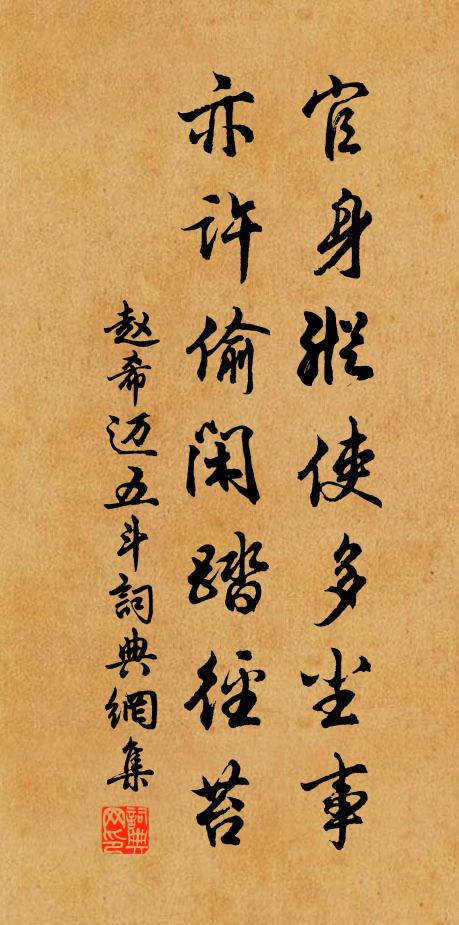 官身縱使多尘事
亦許偷閑踏徑苔
赵希迈五斗詞典網集
詞典网印